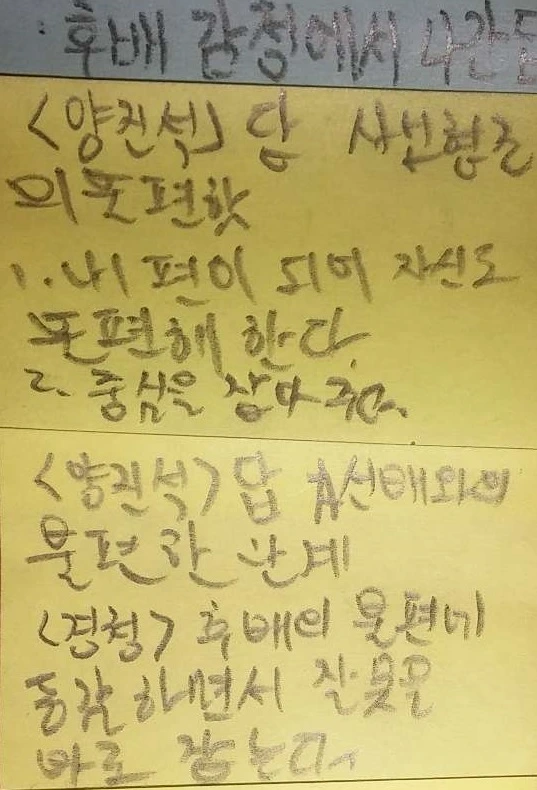 : 후배 감청에서 나간
<양진석> 답
의 불편핫
1. 내 편이 되어 자신도
불편해 한다.
2. 중심을 잡아 준다.
<양진석> 답 선배와의
불편한 관계
<경청> 후배의 불편에
동감 하면서 잘못은
바로 잡는다.